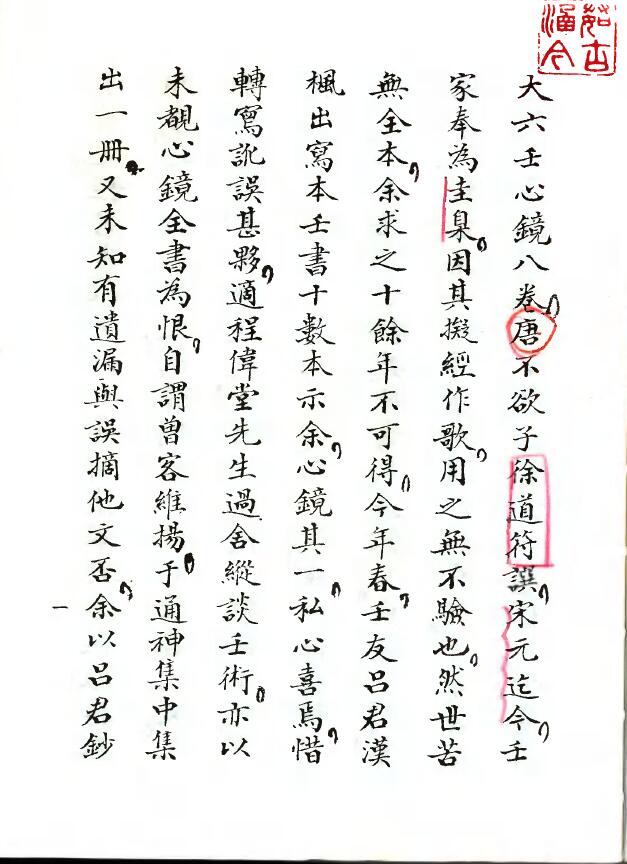 大六壬心鏡八卷唐不欲子徐道符譔宋元迄今壬
家奉為圭臬因其擬經作歌用之無不驗也然世苦
無全本余求之十餘年不可得今年春壬友呂君漢
楓出寫本壬書十數本示余心鏡其一私心喜焉惜
轉寫訛誤甚夥適程偉堂先生過舍縱談壬術亦以
未覩心鏡全書為恨自謂曽客維揚于通神集中集
出一冊又未知有遺漏與誤摘他文否余以呂君鈔
一